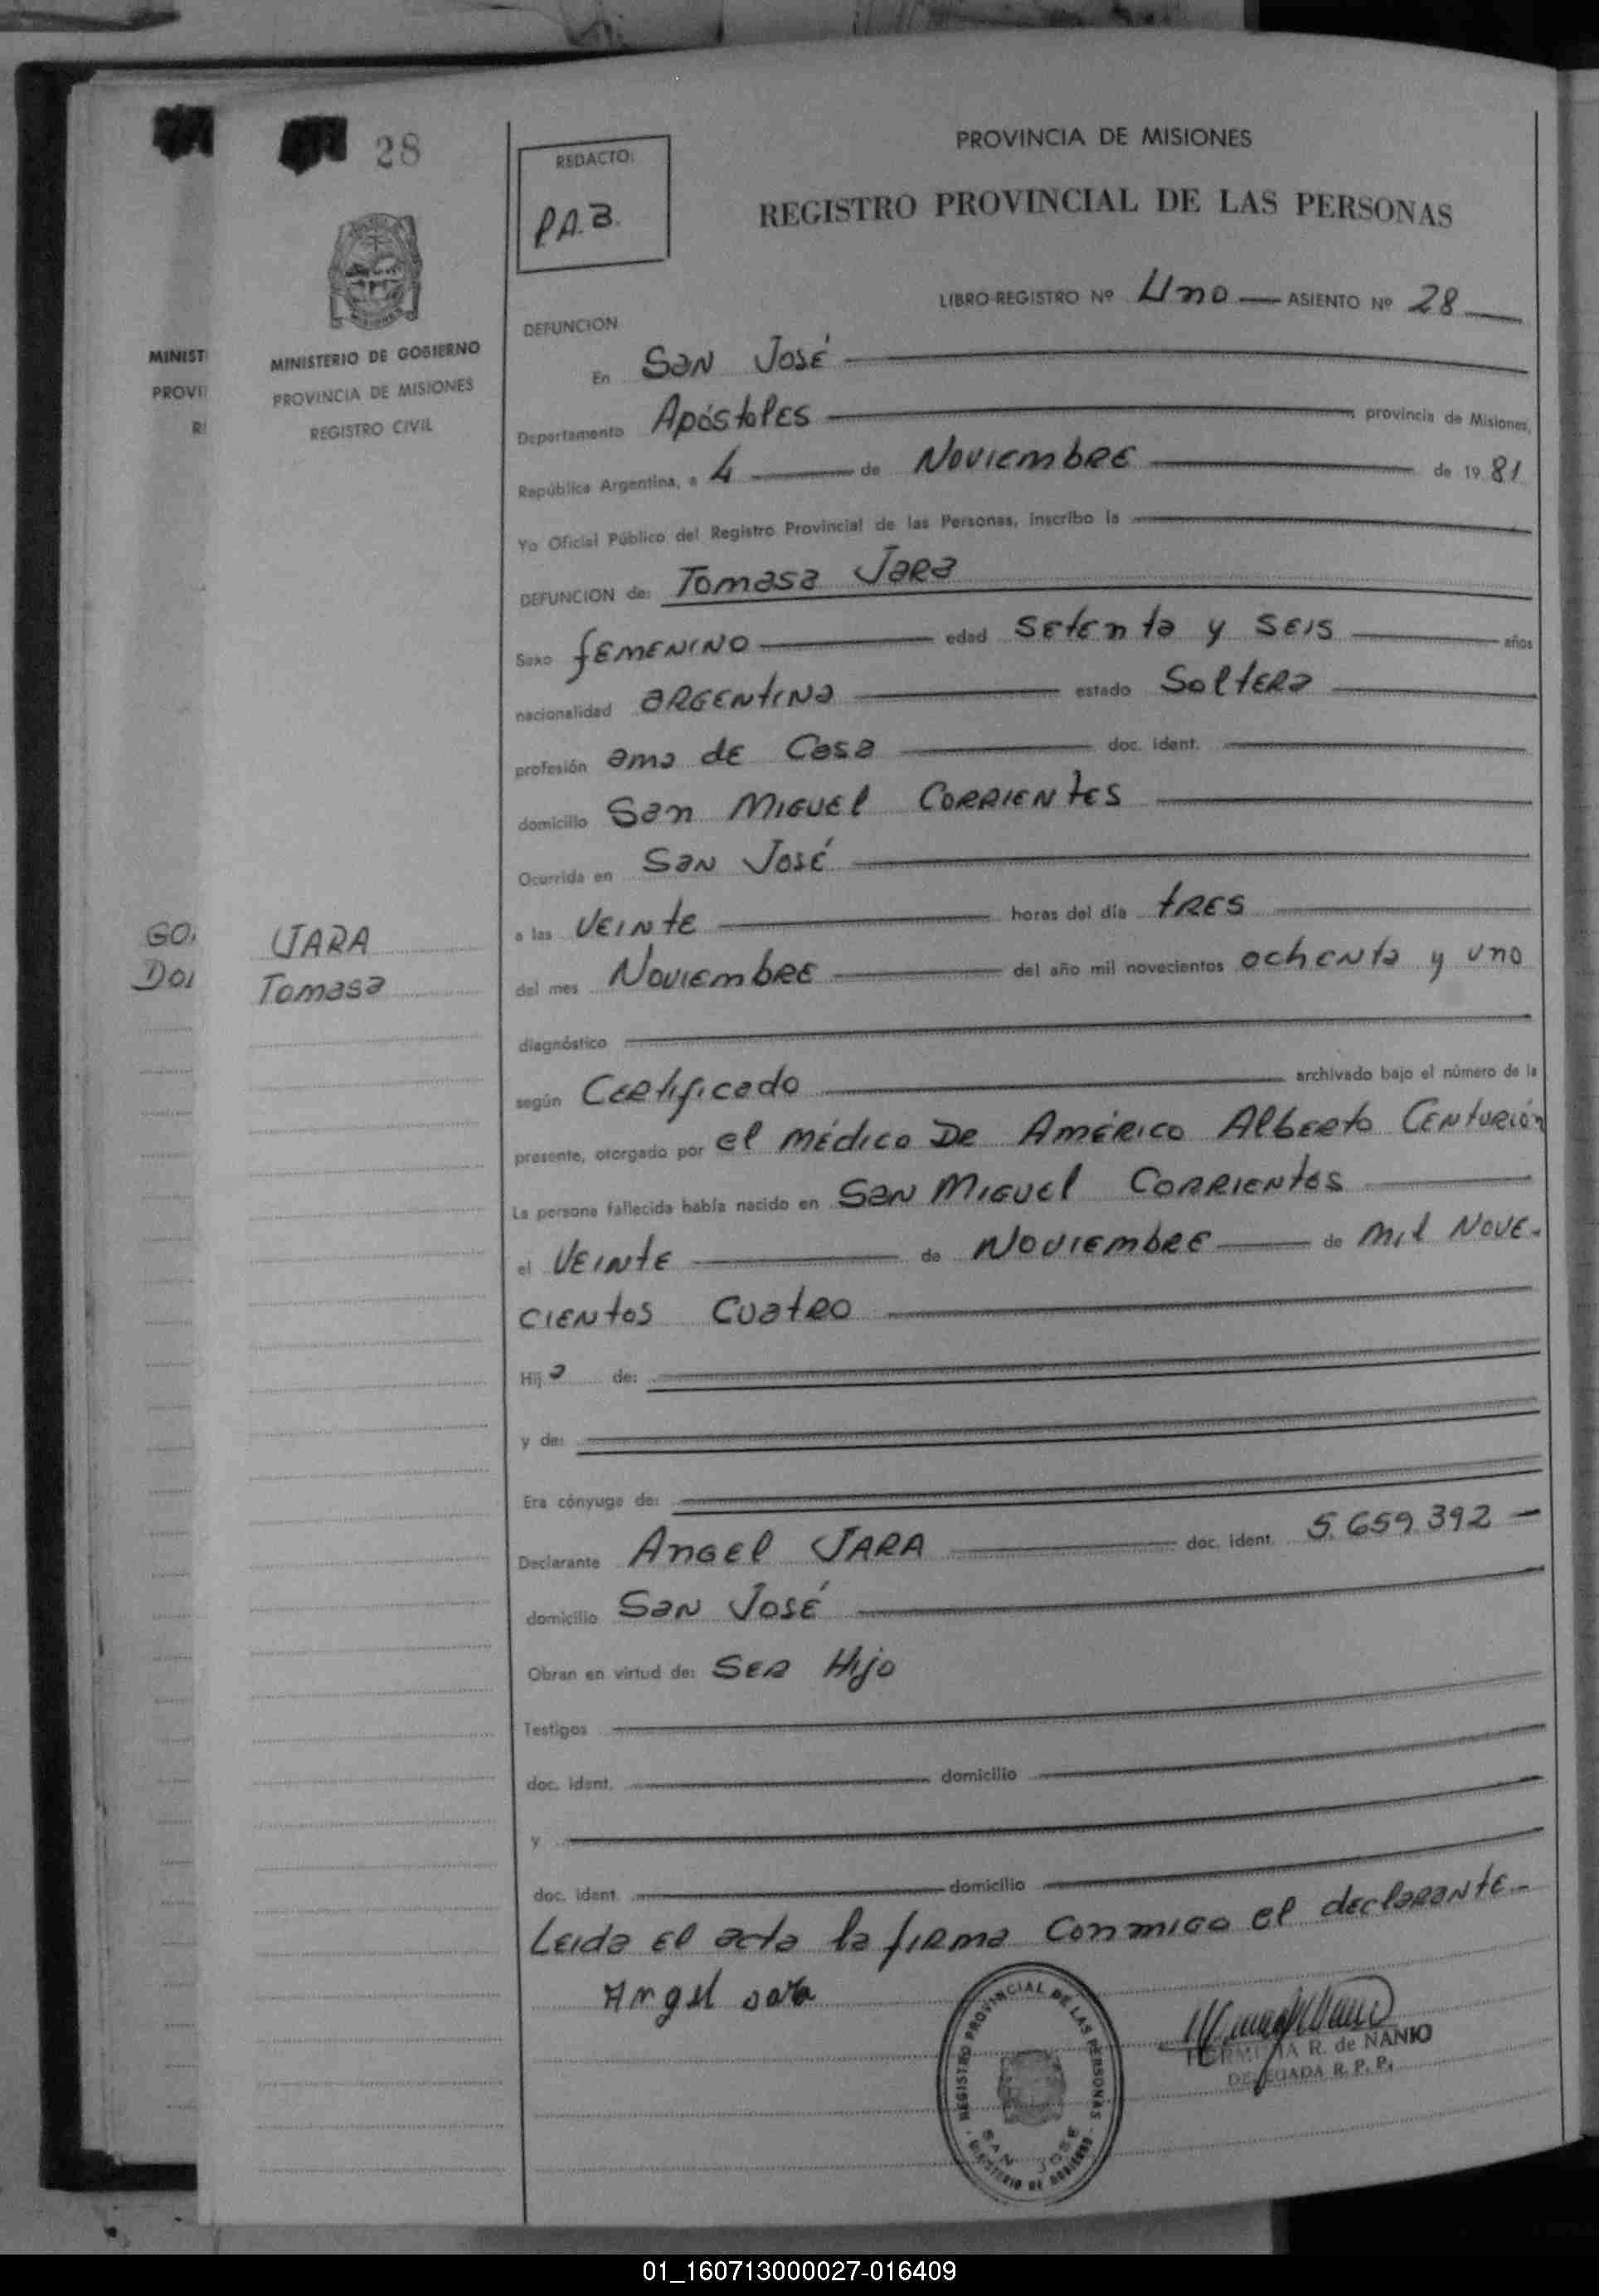 28
MINISTERIO DE GOBIERNO
PROVINCIA DE MISIONES
REGISTRO CIVIL
MINIST
PROVI
GO
DO
JARA
Tomasa
REDACTO:
P.A.B.
PROVINCIA DE MISIONES
REGISTRO PROVINCIAL DE LAS PERSONAS
LIBRO-REGISTRO Nº Uno ASIENTO Nº 28
DEFUNCION
En San José
Departamento Apóstoles provincia de Misiones,
República Argentina, a 4 de Noviembre de 1981
Yo Oficial Público del Registro Provincial de las Personas, inscribo la
DEFUNCION de: Tomasa Jara
Sexo femenino edad setenta y seis años
nacionalidad argentina estado Soltera
profesión ama de Casa doc. ident.
domicilio San Miguel Corrientes
Ocurrida en San José
a las veinte horas del día tres
del mes Noviembre del año mil novecientos ochenta y uno
diagnóstico
según Certificado archivado bajo el número de la
presente, otorgado por el médico De Américo Alberto Centurión
La persona fallecida había nacido en San Miguel Corrientes
el Veinte de Noviembre de mil nove-
cientos Cuatro
Hija de:
y de:
Era cónyuge de:
Declarante Angel Jara doc. ident. 5.659.392
domicilio San José
Obran en virtud de: Ser Hijo
Testigos
doc. ident. domicilio
y
doc. ident. domicilio
Leida el acta la firma conmigo el declarante.
Angel Jara
REGISTRO PROVINCIAL DE LAS PERSONAS
SAN JOSE
MINISTERIO DE GOBIERNO
HERMINIA R. de NANIO
DELEGADA R. P. P.
01_160713000027-016409